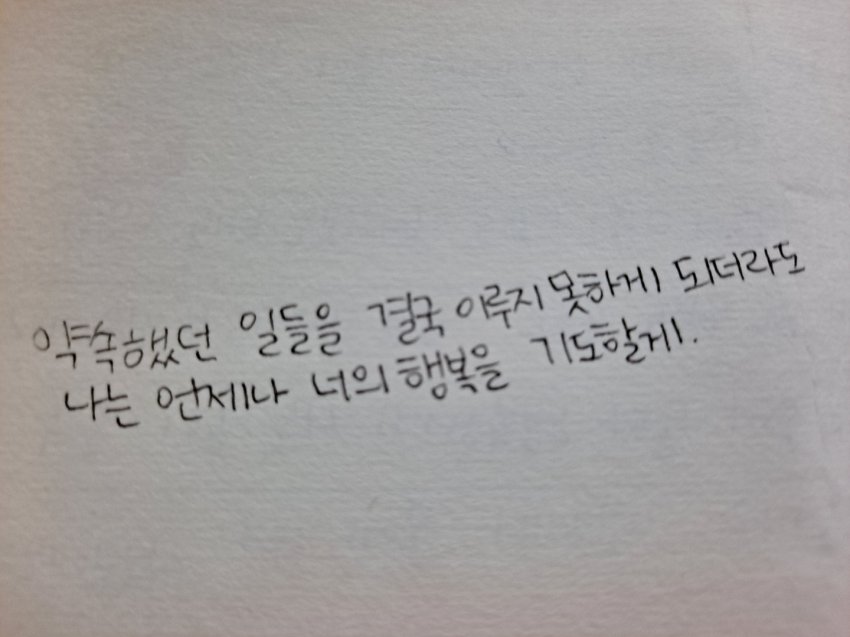 약속했던 일들을 결국 이루지 못하게 되더라도
나는 언제나 너의 행복을 기도할게.